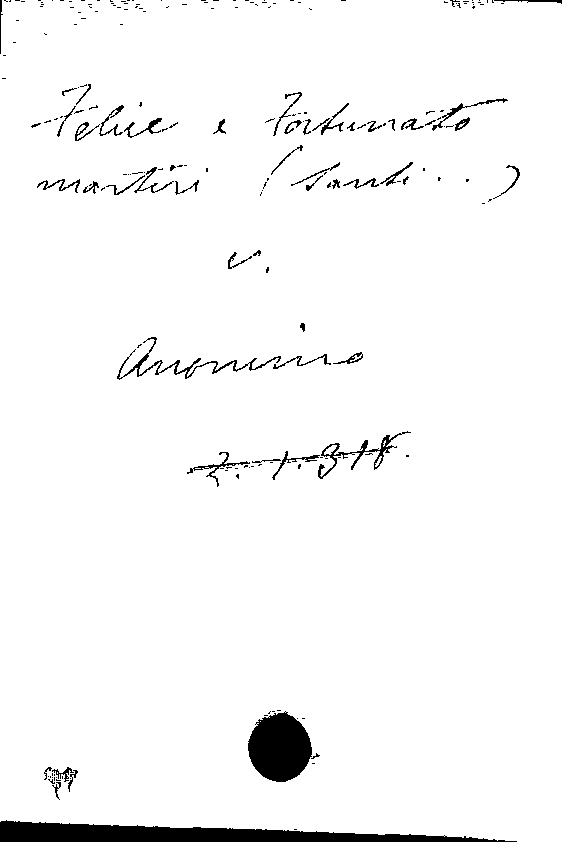 Felice e Fortunato
martiri (Santi . . )
v.
Anonimo
2. 1. 318.